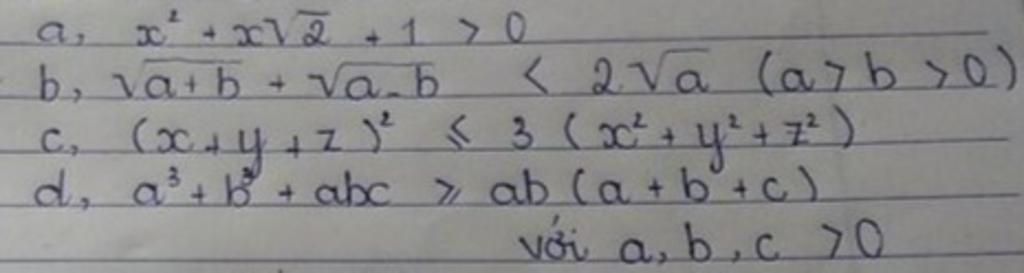 a, x² + x√2 + 1 > 0
b, √(a+b) + √(a-b) < 2√a (a > b > 0)
c, (x + y + z)² ≤ 3 (x² + y² + z²)
d, a³ + b³ + abc ≥ ab (a + b + c)
với a, b, c > 0